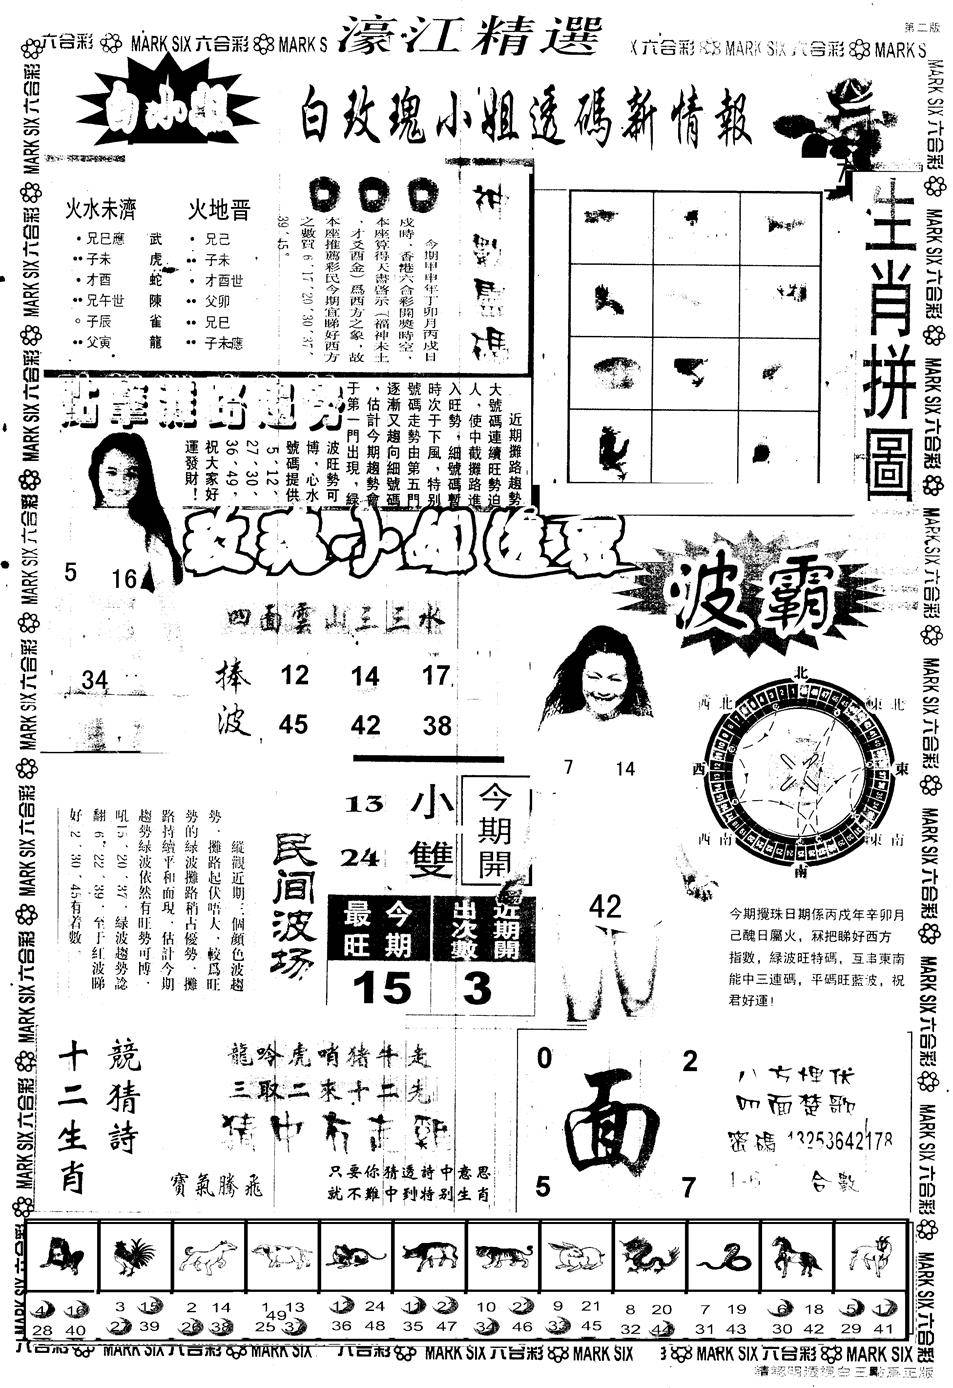 第二版
六合彩 MARK SIX 六合彩 MARK S
濠江精選
六合彩 MARK SIX 六合彩 MARK S
白小姐
白玫瑰小姐透碼新情報
火水未濟
兄巳應 武
子未 虎
才酉 蛇
兄午世 陳
子辰 雀
父寅 龍
火地晋
兄己
子未
才酉世
父卯
兄巳
子未應
今期甲申年丁卯月丙戌日
戌時，香港六合彩開獎時空，
本座算得天書啓示（福神未土
，才爻酉金）爲西方之象，故
本座推薦彩民今期宜睇好西方
之數買 6、17、20、30、37、
39、45。
生肖拼圖
近期攤路趨勢
大號碼連續旺勢迫
人，使中截攤路進
入旺勢，細號碼暫
時次于下風，特别
號碼走勢由第五門
逐漸又趨向細號碼
，估計今期趨勢會
于第一門出現，緑
波旺勢可
博，心水
號碼提供
5、12、
27、30、
36、49，
祝大家好
運發財！
5 16
34
四面雲山三三水
捧波
12 14 17
45 42 38
波霸
7 14
42
北
西北 東北
西 東
西南 東南
南
今期攪珠日期係丙戌年辛卯月
己醜日屬火，冧把睇好西方
指數，緑波旺特碼，互串東南
能中三連碼，平碼旺藍波，祝
君好運！
縱觀近期三個顔色波趨
勢，攤路起伏唔人，較爲旺
勢的緑波攤路稍占優勢，攤
路持續平和而現，估計今期
趨勢緑波依然有旺勢可博，
吼15、20、37，緑波趨勢諗
翻 6、22、39，至于红波睇
好 2、30、45有着數。
民间波场
13 小
24 雙
今期開
今期最旺
15
近期開出次數
3
十二生肖
競猜詩
龍吟虎哨猪牛走
三取二來十二先
猜中有走
寶氣騰飛
只要你猜透詩中意思
就不難中到特别生肖
0 2
面
5 7
八方埋伏
四面楚歌
密碼 13253642178
1-6 合數
4 16
28 40
3 15
27 39
2 14
26 38
1 13
49
25 37
12 24
36 48
11 23
35 47
10 22
34 46
9 21
33 45
8 20
32 44
7 19
31 43
6 18
30 42
5 17
29 41
六合彩 MARK SIX 六合彩 MARK SIX 六合彩 MARK SIX 六合彩 MARK SIX 六合彩 MARK SIX 六合彩